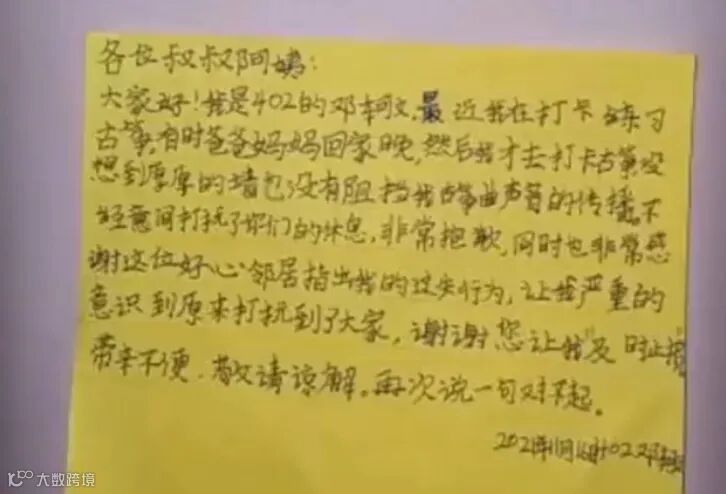 各位叔叔阿姨:
大家好!我是402的邓轲文,最近我在打卡练习
古筝,有时爸爸妈妈回家晚,然后我才去打卡古筝没
想到厚厚的墙也没有阻挡我古筝曲声音的传播,不
经意间打扰了你们的休息,非常抱歉,同时也非常感
谢这位好心邻居指出我的过失行为,让我严重的
意识到原来打扰到了大家,谢谢您让我及时止损
带来不便,敬请谅解。再次说一句对不起。
2021年11月 402邓
大数跨境